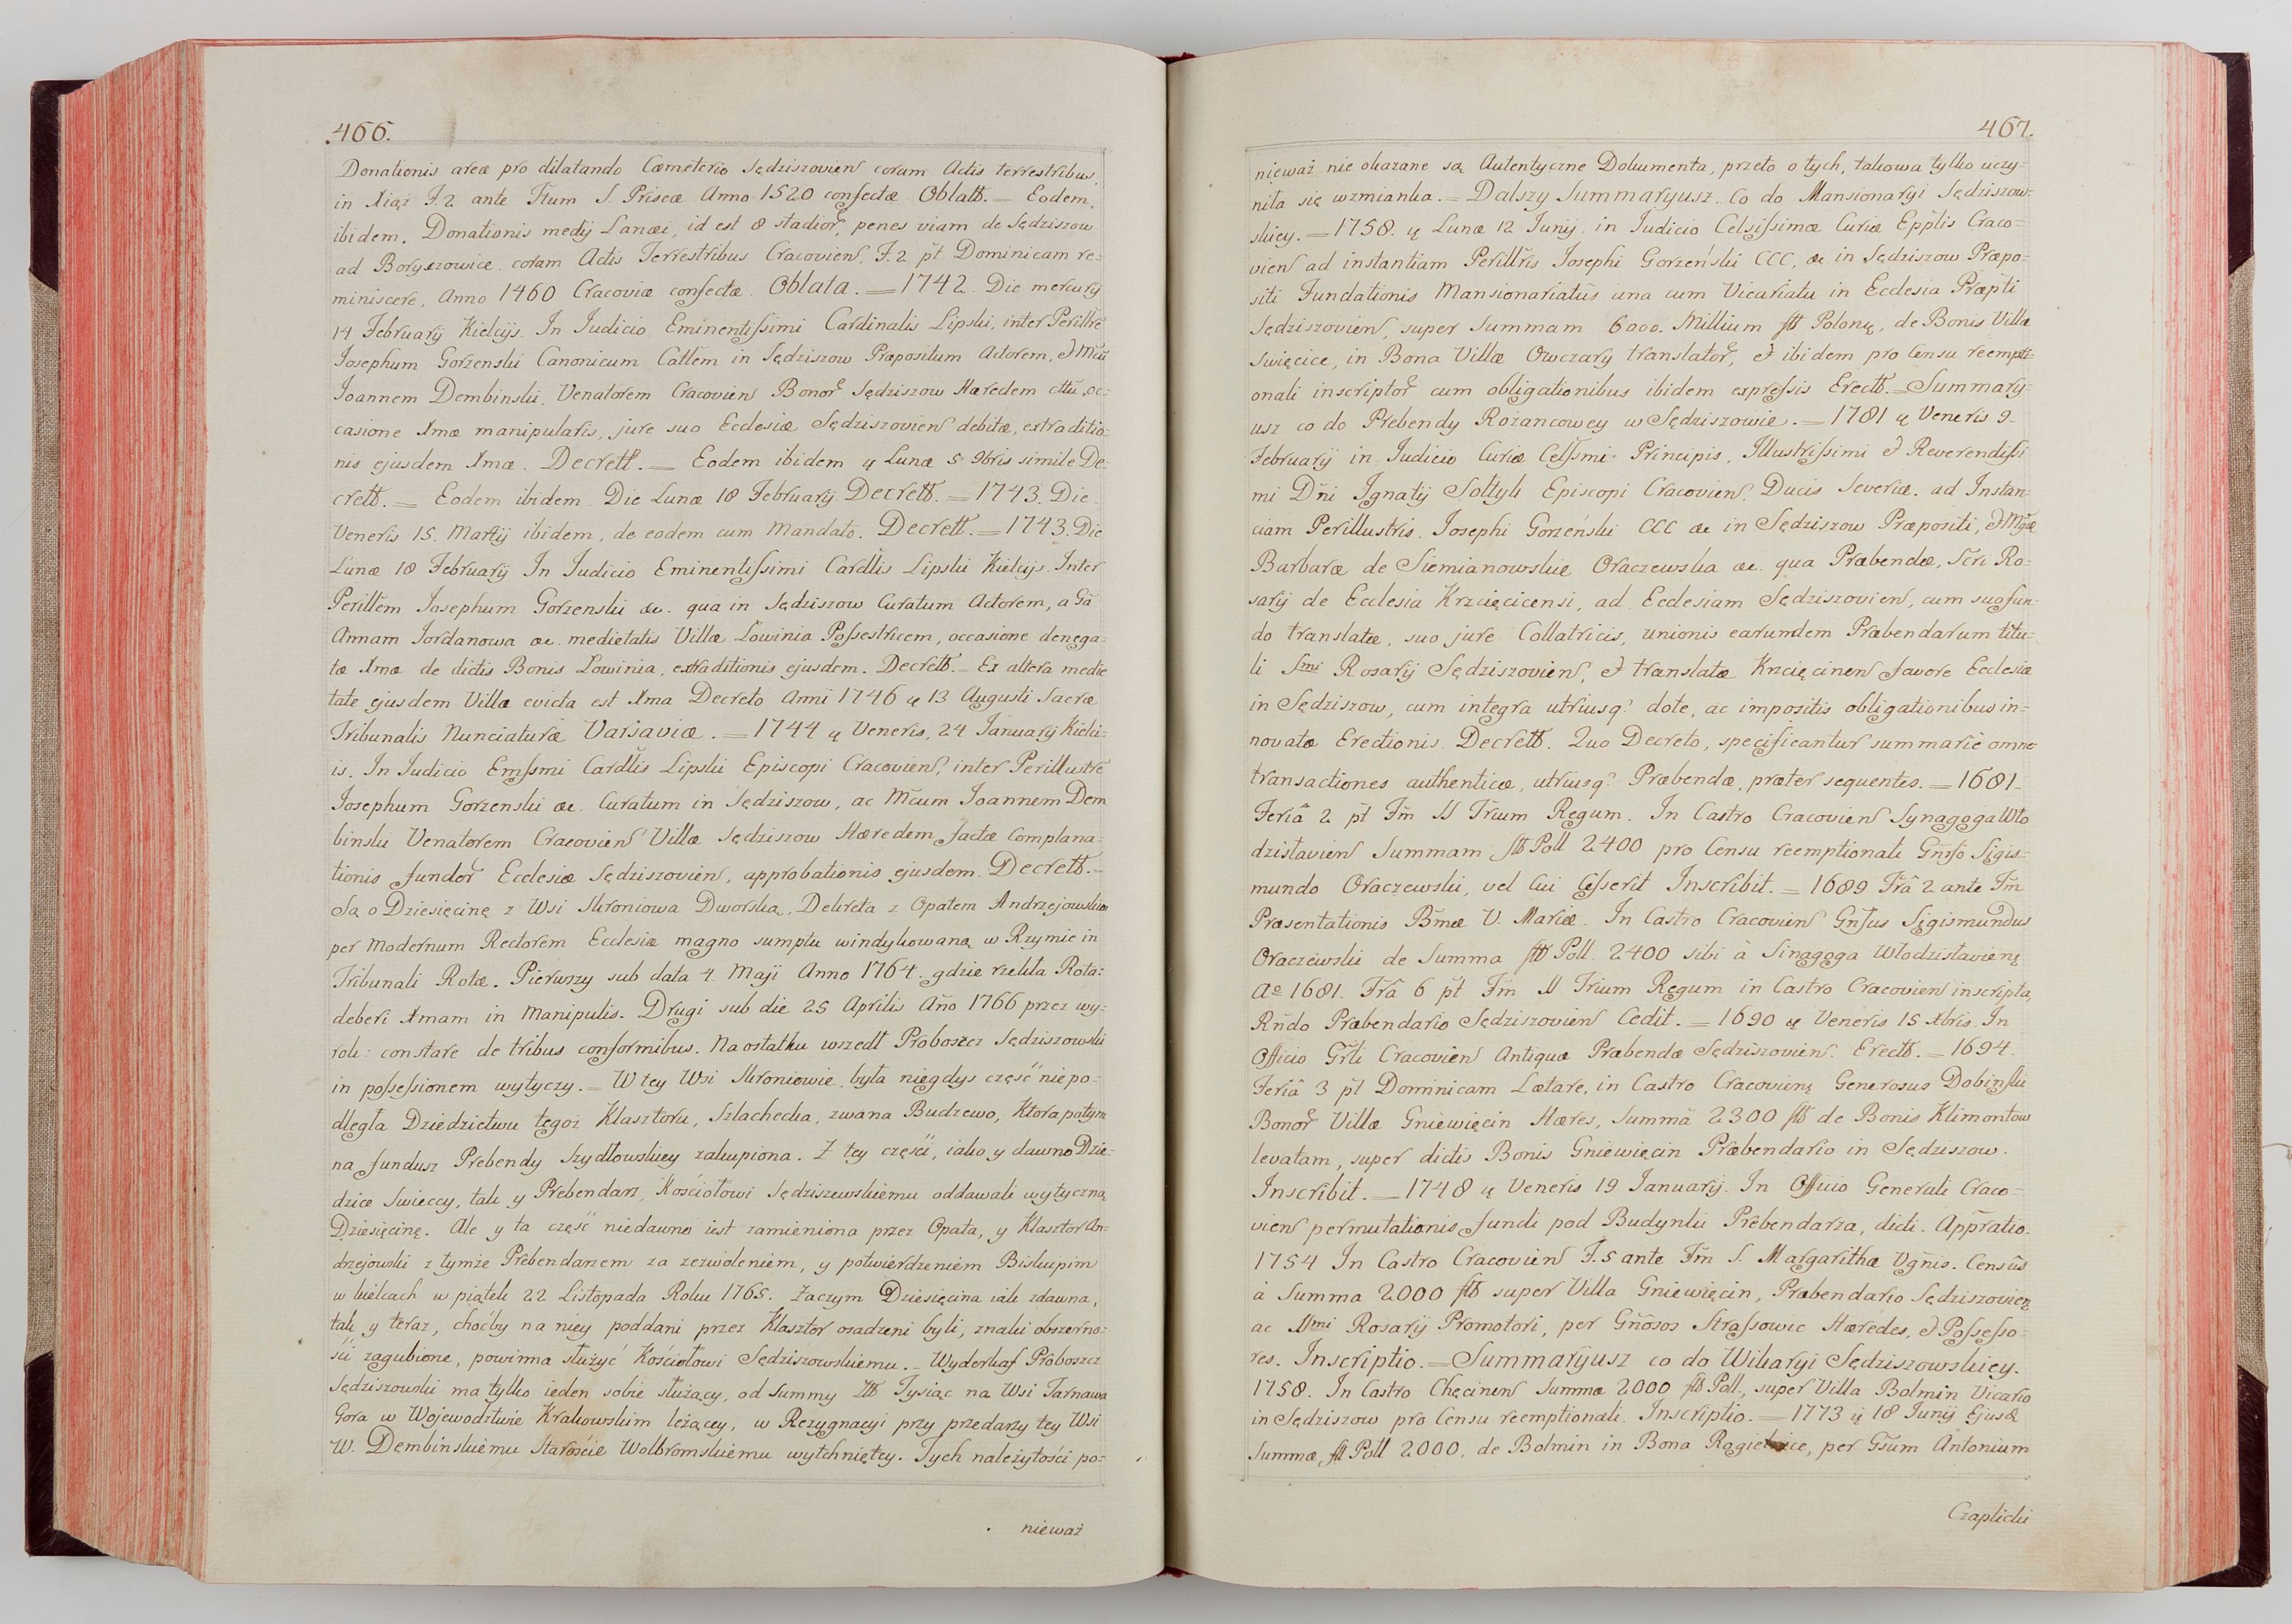 466.
Donationis areæ pro dilatando Cœmeterio Sędziszovien coram Actis terrestribus
in Xiąż F. 2 ante Ftum S. Priscæ Anno 1520 confectæ Oblatt. = Eodem,
ibidem. Donationis medij Lanei, id est 8 stadior, penes viam de Sędziszow
ad Boryszowice coram Actis Terrestribus Cracovien, F. 2 pt Dominicam re=
miniscere, Anno 1460 Cracoviæ confectæ Oblata. = 1742. Die mercurij
14 February Kielcijs. In Iudicio Eminentissimi Cardinalis Lipski, inter Perillre
Iosephum Gorzenski Canonicum Cattem in Sędziszow Præpositum Actorem, & Mcu
Ioannem Dembinski, Venatorem Cracovien Bonor Sędziszow Hæredem cttu, oc=
casione Xmæ manipularis, jure suo Ecclesiæ Sędziszovien debitæ, extraditio=
nis ejusdem Xmæ. Decrett. = Eodem ibidem ę Lunæ 5 9bris simile De=
crett. = Eodem ibidem Die Lunæ 18 February Decrett. = 1743. Die
Veneris 15. Martij ibidem, de eodem cum Mandato. Decrett. = 1743. Die
Lunæ 18 February In Iudicio Eminentissimi Cardlis Lipski Kielcijs Inter
Perillem Iosephum Gorzenski &c. qua in Sędziszow Curatum Actorem, a Gā
Annam Iordanowa &c. medietatis Villæ Lowinia Possestricem, occasione denega=
tæ Xmæ de dictis Bonis Lowinia, extraditionis ejusdem. Decrett. = Ex altera medie
tate ejusdem Villæ evicta est Xma Decreto Anni 1746 ę 13 Augusti Sacræ
Tribunalis Nunciaturæ Varsaviæ. = 1744 ę Veneris, 24 Ianuarij Kielci=
is. In Iudicio Emssmi Cardlis Lipski Episcopi Cracovien, inter Perillustre
Iosephum Gorzenski &c. Curatum in Sędziszow, ac Mcum Ioannem Dem
binski Venatorem Cracovien Villæ Sędziszow Hæredem factæ Complana=
tionis fundor Ecclesiæ Sędziszovien, approbationis ejusdem. Decrett. =
Są o Dziesięcinę z Wsi Skroniowa Dworską, Dekreta z Opatem Andrzejowskim
per Modernum Rectorem Ecclesiæ magno sumptu windykowaną w Rzymie in
Tribunali Rotæ. Pierwszy sub data 4 Maji Anno 1764. gdzie rzekła Rota:
deberi Xmam in Manipulis. Drugi sub die 25 Aprilis Año 1766 przez wy=
rok: constare de tribus conformibus. Na ostatku wszedł Proboszcz Sędziszowski
in possessionem wytyczy. = W tey Wsi Skroniowie była niegdys część niepo=
dległa Dziedzictwu tegoż Klasztoru, Szlachecka, zwana Budzewo, Ktora potym
na fundusz Prebendy Szydłowskiey zakupiona. Z tey części, iako y dawno Dzie=
dzice Swieccy, tak y Prebendarz, Kościołowi Sędziszewskiemu oddawali wytyczną
Dziesięcinę. Ale y ta część niedawno iest zamieniona przez Opata, y Klasztor An=
drzejowski z tymże Prebendarzem za zezwoleniem, y potwierdzeniem Biskupim
w kielcach w piątek 22 Listopada Roku 1765. Zaczym Dziesięcina iak zdawna,
tak y teraz, choćby na niey poddani przez Klasztor osadzeni byli, znaki obszerno=
ści zagubione, powinna służyć Kościołowi Sędziszowskiemu. = Wyderkaf Proboszcz
Sędziszowski ma tylko ieden sobie służący, od Summy Ztt Tysiąc na Wsi Tarnawa
Gora w Wojewodztwie Krakowskim leżącey, w Rezygnacyi przy przedarzy tey Wsi
W. Dembinskiemu Staroście Wolbromskiemu wytchniętey. Tych należytości po=
nieważ
467.
nieważ nie okazane są Autentyczne Dokumenta, przeto o tych, takowa tylko uczy=
niła się wzmianka. = Dalszy Summaryusz. Co do Mansionaryi Sędziszow=
skiey. = 1758. ę Lunæ 12 Junij in Iudicio Celsissimæ Curiæ Epplis Craco=
vien ad instantiam Perillris Iosephi Gorzeński CCC, &c in Sędziszow Præpo=
siti Fundationis Mansionariatus una cum Vicariatu in Ecclesia Præpti
Sędziszovien, super Summam 6000. Millium ftt Polonę, de Bonis Villæ
Swięcice, in Bona Villæ Owczary translator, & ibidem pro Censu reempti=
onali inscriptor cum obligationibus ibidem expressis Erectt. = Summary=
usz co do Prebendy Rożancowey w Sędziszowie. = 1781 ę Veneris 9
February in Iudicio Curiæ Celssmi Principis, Illustrissimi & Reverendissi
mi Dñi Ignatij Sołtyk Episcopi Cracovien, Ducis Severiæ. ad Instan=
ciam Perillustris. Iosephi Gorzeński CCC &c in Sędziszow Præpositi, & Mgcæ
Barbaræ de Siemianowskie Oraczewska &c. qua Præbendæ, Scri Ro=
sarij de Ecclesia Krzcięcicensi, ad Ecclesiam Sędziszovien, cum suo fun=
do translatæ, suo jure Collatricis, unionis earumdem Præbendarum titu=
li Smi Rosarij Sędziszovien, & translatæ Krzcięcinen favore Ecclesiæ
in Sędziszow, cum integra utriusq; dote, ac impositis obligationibus in=
novatæ Erectionis. Decrett. Quo Decreto, specificantur summariè omne
transactiones authenticæ, utriusq; Præbendæ, præter sequentes. = 1681
Feriâ 2 pt Fm SS Trium Regum. In Castro Cracovien Synagoga Wło
dzisłavien Summam ftt Poll 2400 pro Censu reemptionali Gnoso Sigis=
mundo Oraczewski, vel Cui Cesserit Inscribit. = 1689 Frâ 2 ante Fm
Præsentationis Bmæ V. Mariæ. In Castro Cracovien Gnsus Sigismundus
Oraczewski de Summa ftt Poll. 2400 sibi à Sinagoga Włodzisłavienę
Aº 1681. Frâ 6 pt Fm SS Trium Regum in Castro Cracovien inscripta,
Rndo Præbendario Sędziszovien Cedit. = 1690 ę Veneris 15 Xbris. In
Officio Grli Cracovien Antiquæ Præbendæ Sędziszovien. Erectt. = 1694.
Feriâ 3 pt Dominicam Lætare, in Castro Cracovienę Generosus Dobinski
Bonor Villæ Gniewięcin Hæres, Summā 2300 ftt de Bonis Klimontow
levatam, super dictis Bonis Gniewięcin Præbendario in Sędziszow.
Inscribit. = 1748 ę Veneris 19 Ianuarij. In Officio Generali Craco=
vien permutationis fundi pod Budynki Prebendarza, dicti. Appratio.
1754 In Castro Cracovien F. 5 ante Fm S. Margarithæ Vgnis. Census
à Summa 2000 ftt super Villa Gniewięcin, Præbendario Sędziszovien
ac SSmi Rosarij Promotori, per Gnosos Strassowic Hæredes, & Possesso=
res. Inscriptio. = Summaryusz co do Wikaryi Sędziszowskiey.
1758. In Castro Chęcinen Summæ 2000 ftt Poll., super Villa Bolmin Vicario
in Sędziszow pro Censu reemptionali. Inscriptio. = 1773 ę 18 Iunij Ejusd
Summæ, ftt Poll 2000, de Bolmin in Bona Rągielnice, per Gsum Antonium
Czaplicki